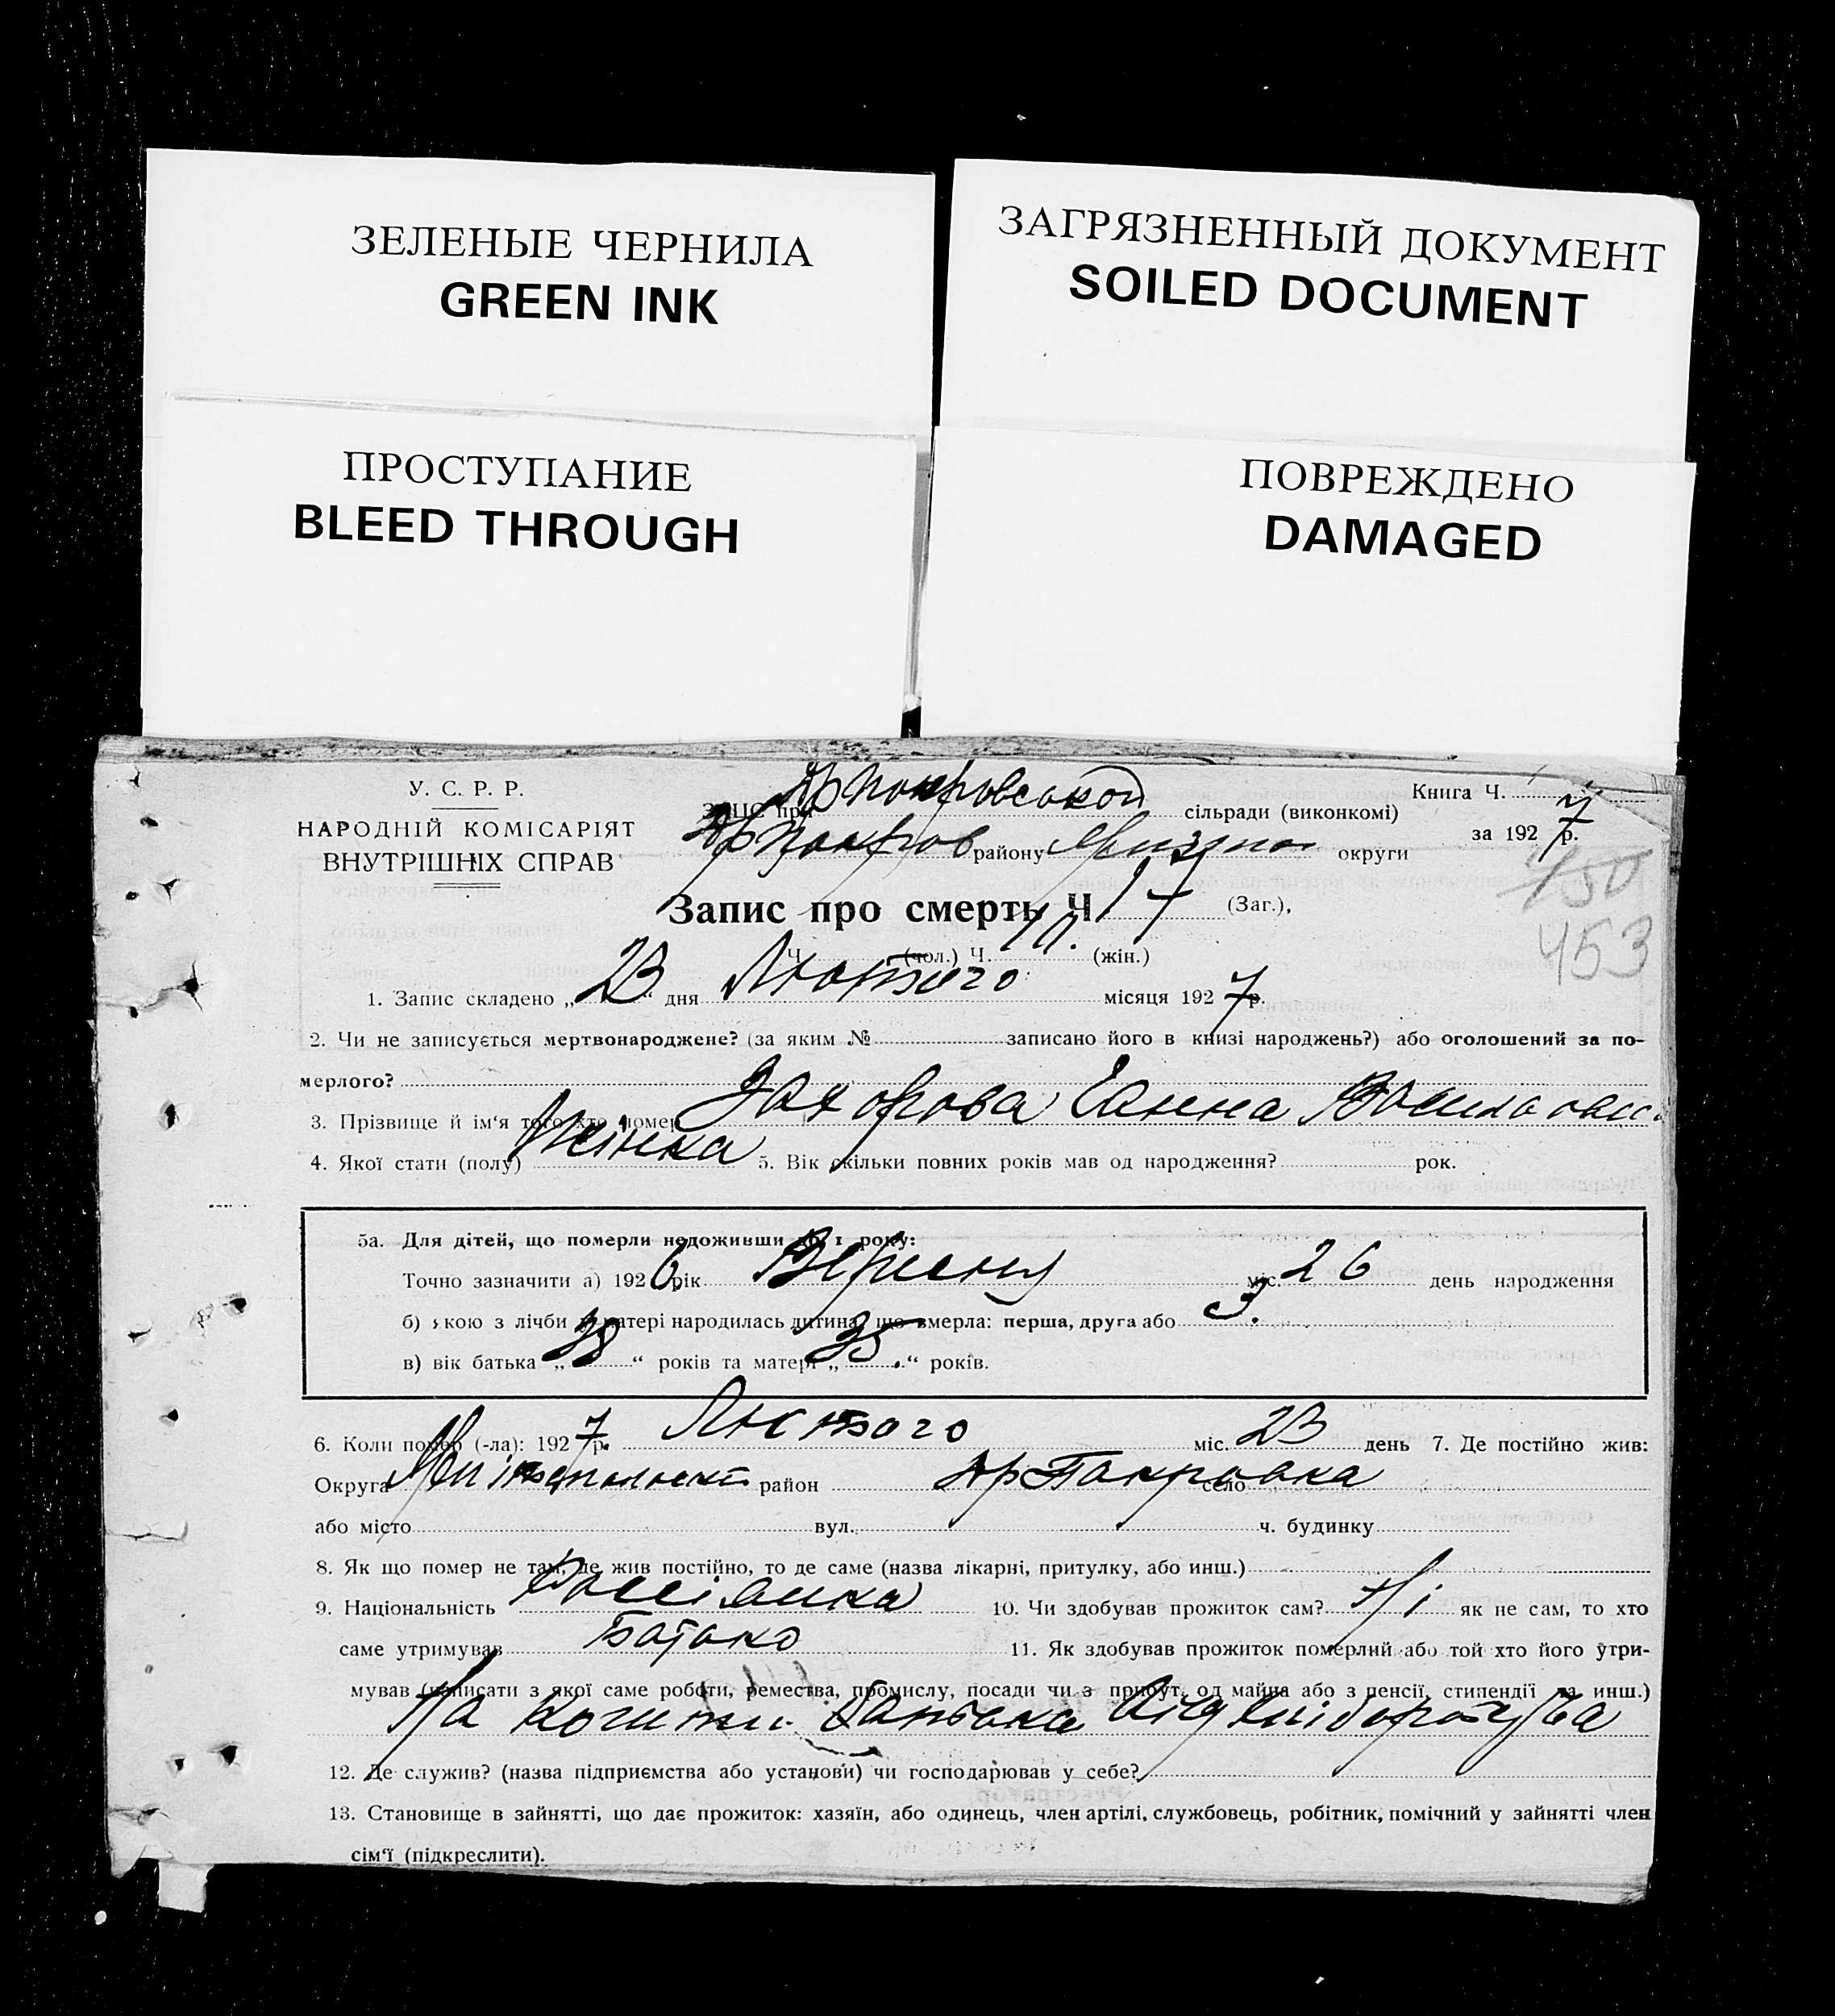 ЗЕЛЕНЫЕ ЧЕРНИЛА
GREEN INK
ЗАГРЯЗНЕННЫЙ ДОКУМЕНТ
SOILED DOCUMENT
ПРОСТУПАНИЕ
BLEED THROUGH
ПОВРЕЖДЕНО
DAMAGED
У. С. Р. Р.
НАРОДНІЙ КОМІСАРІЯТ
ВНУТРІШНІХ СПРАВ
Книга Ч.
за 1927 р.
ЗАЦС при сільради (виконкомі)
району округи
450
453
Запис про смерть Ч. 17 (Заг.),
Ч. (чол.) Ч. 10. (жін.)
1. Запис складено „23“ дня Лютого місяця 1927 р.
2. Чи не записується мертвонароджене? (за яким № записано його в книзі народжень?) або оголошений за по-
мерлого?
3. Прізвище й ім‘я того хто помер Захорова Ганна
4. Якої стати (полу) Жінка 5. Вік скільки повних років мав од народження? рок.
5а. Для дітей, що померли недоживши до 1 року:
Точно зазначити а) 1926 рік Вересня міс. 26 день народження
б) якою з лічби у матері народилась дитина, що вмерла: перша, друга або 3.
в) вік батька „38“ років та матері „35.“ років.
6. Коли помер (-ла): 1927 р. Лютого міс. 23 день 7. Де постійно жив:
Округа район НрПокровка село
або місто вул. ч. будинку
8. Як що помер не там, де жив постійно, то де саме (назва лікарні, притулку, або инш.)
9. Національність Россіянка 10. Чи здобував прожиток сам? Ні як не сам, то хто
саме утримував Батько 11. Як здобував прожиток померлий або той хто його утри-
мував (написати з якої саме роботи, ремества, промислу, посади чи з прибут. од майна або з пенсії, стипендії та инш.)
На кошти Батька
12. Де служив? (назва підприємства або установи) чи господарював у себе?
13. Становище в зайнятті, що дає прожиток: хазяїн, або одинець, член артілі, службовець, робітник, помічний у зайнятті член
сім‘ї (підкреслити).